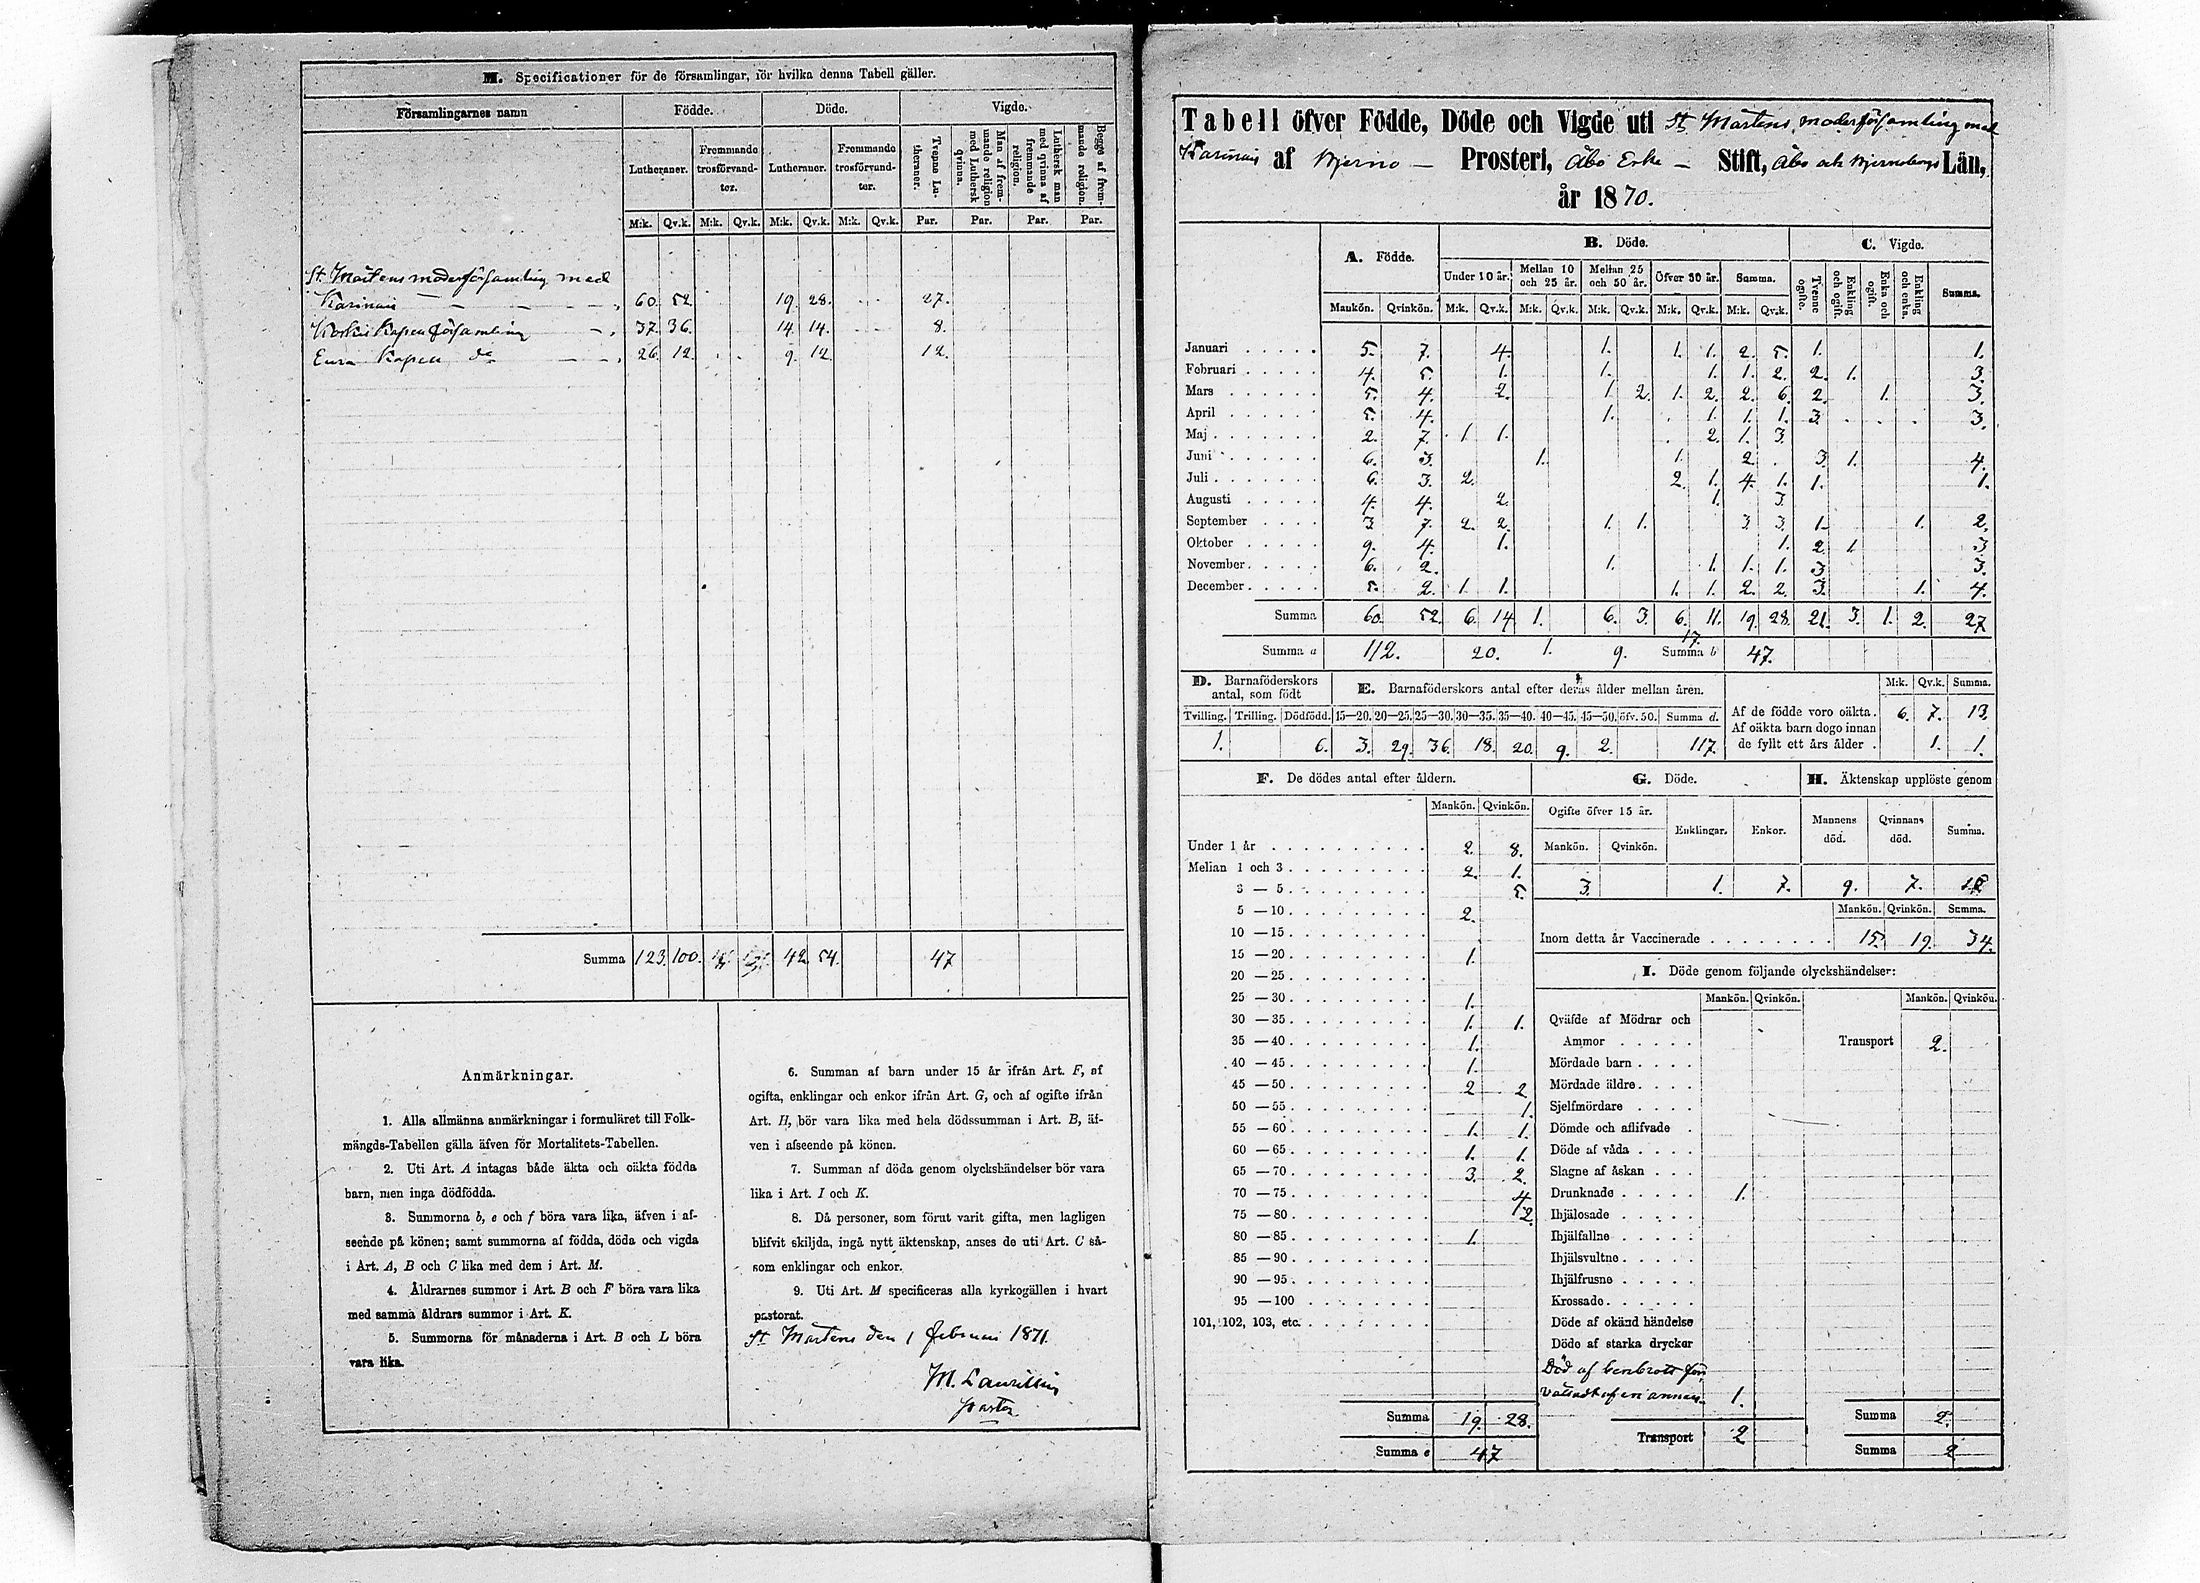 M. Specificationer för de församlingar, för hvilka denna Tabell gäller.
Församlingarnes namn Födde. Döde. Vigde.
Lutheraner. Fremmande trosförvandter. Lutheraner. Fremmande trosförvandter. Tvenne Lutheraner. Man af fremmande religion med Luthersk qvinna. Luthersk man med qvinna af fremmande religion. Begge af fremmande religion.
M:k. Qv.k. M:k. Qv.k. M:k. Qv.k. M:k. Qv.k. Par. Par. Par. Par.
St Mårtens moderförsamling med
Karinais 60. 52. 19. 28. 27.
Koskis Kapellförsamling 37. 36. 14. 14. 8.
Eura Kapell do 26. 12. 9. 12. 12.
Summa 123. 100. 42. 54. 47
Anmärkningar.
1. Alla allmänna anmärkningar i formuläret till Folk-
mängds-Tabellen gälla äfven för Mortalitets-Tabellen.
2. Uti Art. A intagas både äkta och oäkta födda
barn, men inga dödfödda.
3. Summorna b, e och f böra vara lika, äfven i af-
seende på könen; samt summorna af födda, döda och vigda
i Art. A, B och C lika med dem i Art. M.
4. Åldrarnes summor i Art. B och F böra vara lika
med samma åldrars summor i Art. K.
5. Summorna för månaderna i Art. B och L böra
vara lika.
6. Summan af barn under 15 år ifrån Art. F, af
ogifta, enklingar och enkor ifrån Art. G, och af ogifte ifrån
Art. H, bör vara lika med hela dödssumman i Art. B, äf-
ven i afseende på könen.
7. Summan af döda genom olyckshändelser bör vara
lika i Art. I och K.
8. Då personer, som förut varit gifta, men lagligen
blifvit skiljda, ingå nytt äktenskap, anses de uti Art. C så-
som enklingar och enkor.
9. Uti Art. M specificeras alla kyrkogällen i hvart
pastorat.
St Mårtens den 1 Februari 1871.
M. Laurellius
pastor
Tabell öfver Födde, Döde och Vigde uti St Mårtens moderförsamling med
Karinais af Bjerno Prosteri, Åbo Erke Stift, Åbo och Bjerneborgs Län,
år 1870.
A. Födde. B. Döde. C. Vigde.
Under 10 år. Mellan 10 och 25 år. Mellan 25 och 50 år. Öfver 50 år. Summa. Tvenne ogifte. Enkling och ogift. Enka och ogift. Enkling och enka. Summa.
Mankön. Qvinkön. M:k. Qv.k. M:k. Qv.k. M:k. Qv.k. M:k. Qv.k. M:k. Qv.k.
Januari 5. 7. 4. 1. 1. 1. 2. 5. 1. 1.
Februari 4. 5. 1. 1. 1. 1. 2. 2. 1. 3.
Mars 5. 4. 2. 1. 2. 1. 2. 2. 6. 2. 1. 3.
April 5. 4. 1. 1. 1. 1. 3. 3.
Maj 2. 7. 1. 1. 2. 1. 3.
Juni 6. 3. 1. 1. 2. 3. 1. 4.
Juli 6. 3. 2. 2. 1. 4. 1. 1. 1.
Augusti 4. 4. 2. 1. 3.
September 3. 7. 2. 2. 1. 1. 3. 3. 1. 1. 2.
Oktober 9. 4. 1. 1. 2. 1. 3
November 6. 2. 1. 1. 1. 1. 3. 3.
December 5. 2. 1. 1. 1. 1. 2. 2. 3. 1. 4.
Summa 60. 52. 6. 14. 1. 6. 3. 6. 11. 19. 28. 21. 3. 1. 2. 27
Summa a 112. 20. 1. 9. 17. Summa b 47.
D. Barnaföderskors antal, som födt
E. Barnaföderskors antal efter deras ålder mellan åren.
M:k. Qv.k. Summa.
Tvilling. Trilling. Dödfödd. 15—20. 20—25. 25—30. 30—35. 35—40. 40—45. 45—50. öfv. 50. Summa d.
1. 6. 3. 29. 36. 18. 20. 9. 2. 117.
Af de födde voro oäkta. 6. 7. 13.
Af oäkta barn dogo innan
de fyllt ett års ålder . 1. 1.
F. De dödes antal efter åldern.
Mankön. Qvinkön.
Under 1 år 2. 8.
Mellan 1 och 3 2. 1.
3 — 5 5.
5 — 10 2.
10 — 15
15 — 20 1.
20 — 25
25 — 30 1.
30 — 35 1. 1.
35 — 40 1.
40 — 45 1.
45 — 50 2 2
50 — 55 1.
55 — 60 1. 1.
60 — 65 1. 1.
65 — 70 3. 2.
70 — 75 4
75 — 80 2.
80 — 85 1.
85 — 90
90 — 95
95 — 100
101, 102, 103, etc.
Summa 19. 28.
Summa e 47
G. Döde.
Ogifte öfver 15 år. Enklingar. Enkor.
Mankön. Qvinkön.
3. 1. 7.
H. Äktenskap upplöste genom
Mannens död. Qvinnans död. Summa.
9. 7.
Mankön. Qvinkön. Summa.
Inom detta år Vaccinerade 15. 19. 34.
I. Döde genom följande olyckshändelser:
Mankön. Qvinkön. Mankön. Qvinkön.
Qväfde af Mödrar och
Ammor
Transport 2.
Mördade barn
Mördade äldre
Sjelfmördare
Dömde och aflifvade
Döde af våda
Slagne af åskan
Drunknade 1.
Ihjälosade
Ihjälfallne
Ihjälsvultne
Ihjälfrusne
Krossade
Döde af okänd händelse
Döde af starka drycker
Död af benbrott för
vålladt af en annan 1.
Transport 2
Summa 2.
Summa 2